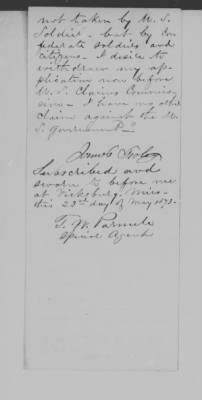 not taken by U. S.
Soldiers - but by Con
federate soldiers and
citizens - I desire to
withdraw my ap-
plication now before
U. S. Claims Commis
sion - I have no other
claim against the U.
S. Government -
Subscribed and
sworn to before me
at Vicksburg, Miss-
this 23rd day of May 1873-
T. W. Parmele
Special Agent